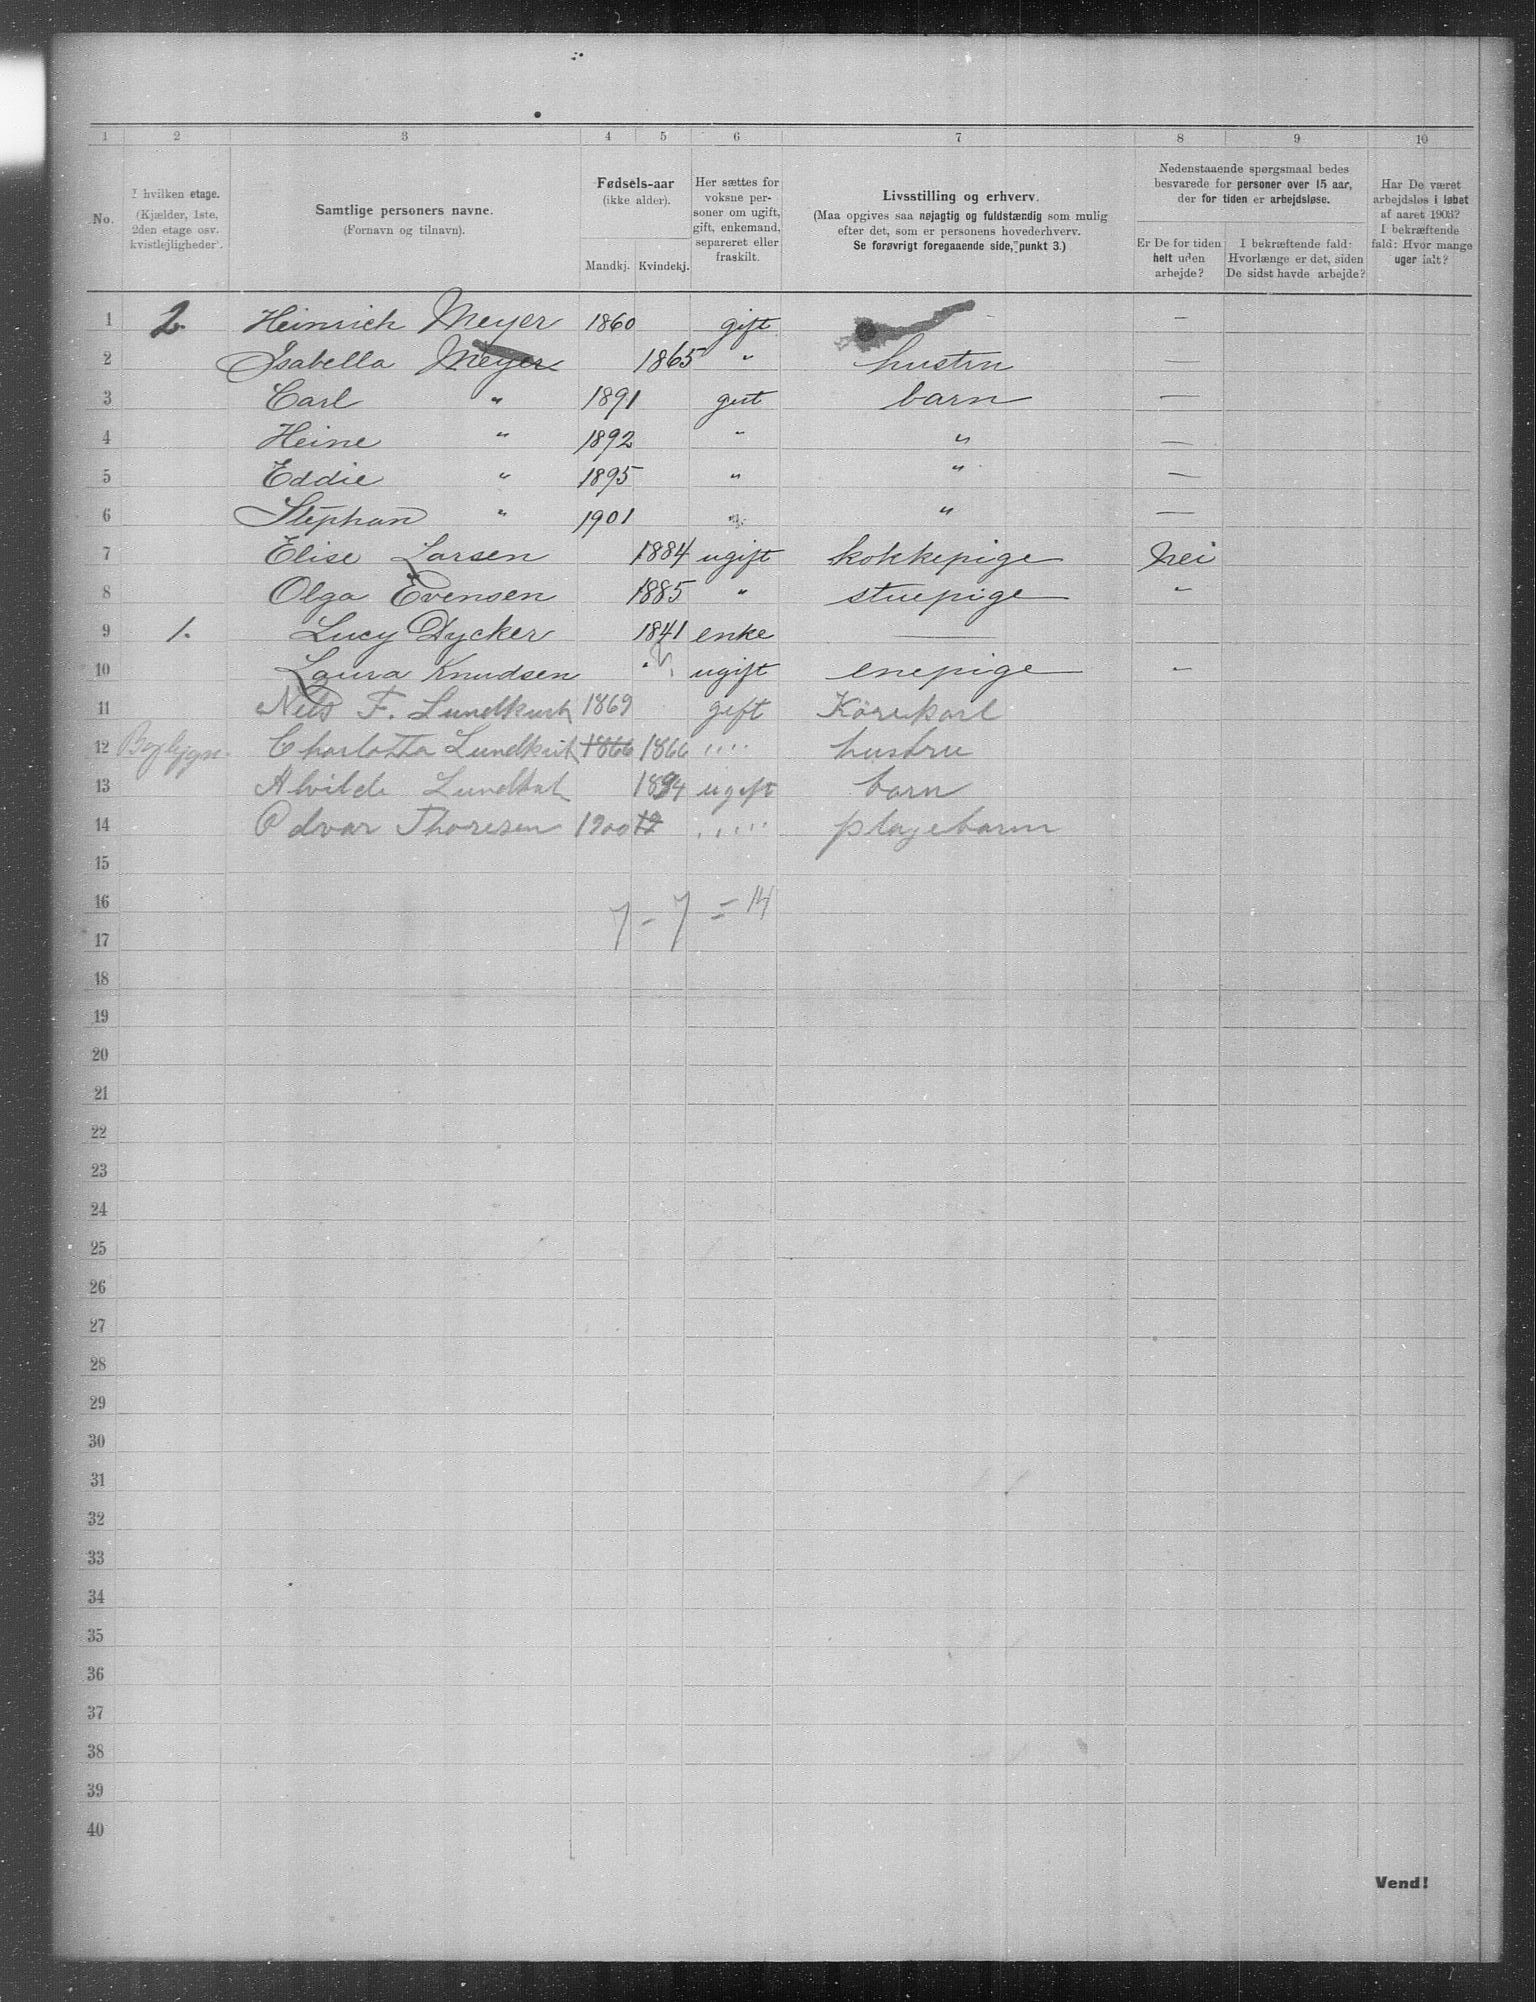 1 2 3 4 5 6 7 8 9 10
No.
I hvilken etage.
(Kjælder, 1ste,
2den etage osv.
kvistlejligheder.
Samtlige personers navne.
(Fornavn og tilnavn).
Fødsels-aar
(ikke alder).
Mandkj. Kvindekj.
Her sættes for
voksne per-
soner om ugift,
gift, enkemand,
separeret eller
fraskilt.
Livsstilling og erhverv.
(Maa opgives saa nøjagtig og fuldstændig som mulig
efter det, som er personens hovederhverv.
Se forøvrigt foregaaende side, punkt 3.)
Nedenstaaende spørgsmaal bedes
besvarede for personer over 15 aar,
der for tiden er arbejdsløse.
Er De for tiden
helt uden
arbejde?
I bekræftende fald:
Hvorlænge er det, siden
De sidst havde arbejde?
Har De været
arbejdsløs i løbet
af aaret 1903?
I bekræftende
fald: Hvor mange
uger ialt?
1 2. Heinrich Meyer 1860 gift —
2 Isabella Meyer 1865 " hustru —
3 Carl " 1891 gut barn —
4 Heine " 1892 " " —
5 Eddie " 1895 " " —
6 Stephan " 1901 " " —
7 Elise Larsen 1884 ugift kokkepige nei
8 Olga Evensen 1885 " stuepige "
9 1. Lucy Dycker 1841 enke —
10 Laura Knudsen " ugift enepige "
11 Nils F. 1869 gift Kørekarl
12 Charlotta 1866 1866 " hustru
13 Alvilde 1894 ugift barn
14 Odvar Thoresen 1900 " plejebarn
15
16
7 - 7 = 14
17
18
19
20
21
22
23
24
25
26
27
28
29
30
31
32
33
34
35
36
37
38
39
40
Vend!